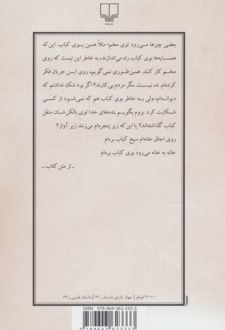 بعضی چیزها می‌رود توی مخم؛ مثلاً همین بوی کباب. این که
همسایه‌ها بوی کباب راه می‌اندازند، به خاطر این نیست که روی
مخم کار کنند. همین‌طوری نمی‌گویم، روی این جریان فکر
کرده‌ام. نه، نیست. مگر مردم بی‌کارند؟ اگر بود شک نداشتم که
دیوانه‌ام، ولی به خاطر بوی کباب هم که نمی‌شود از کسی
شکایت کرد. بروم بگویم بنده‌های خدا توی بالکن‌شان منقل
کباب گذاشته‌اند؟ یا این‌که زیر پنجره‌ام می‌زنند زیر آواز؟
روی اجاق خانه‌ام سیخ کباب برمام
خانه به خانه می‌رود بوی کباب برمام
ـ از متن کتاب ـ